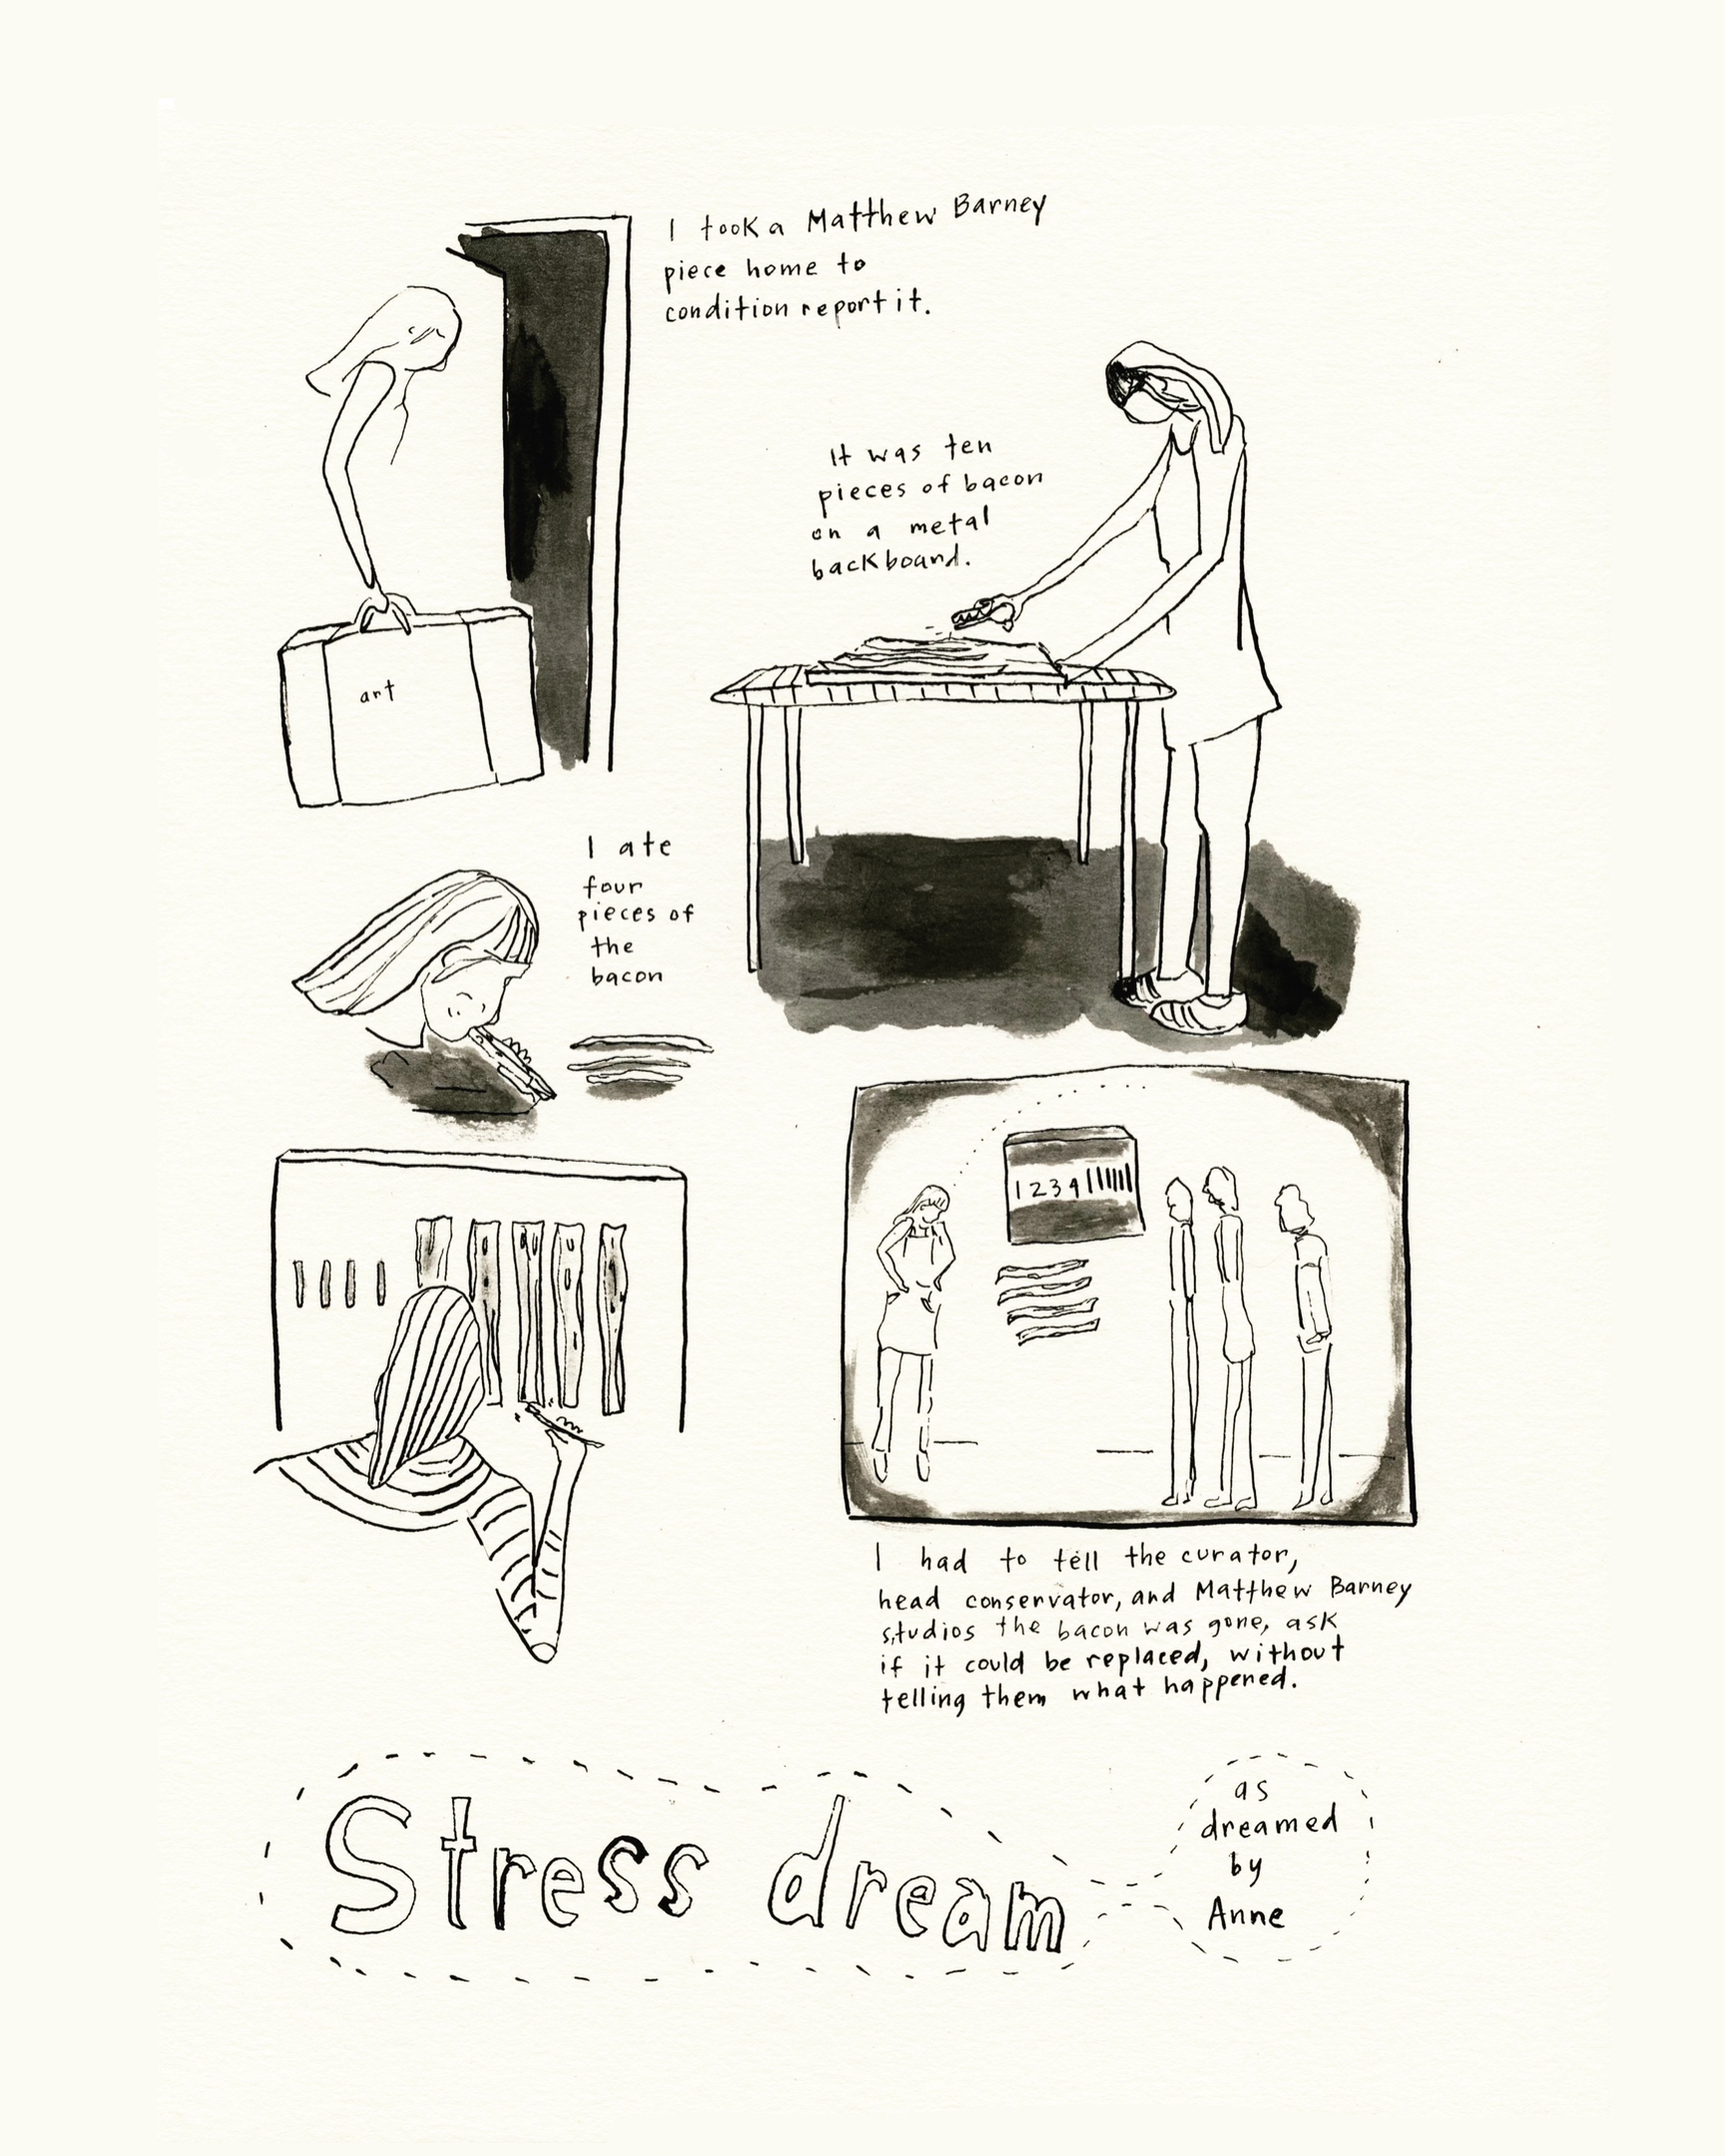 I took a Matthew Barney
piece home to
condition report it.
art
It was ten
pieces of bacon
on a metal
backboard.
I ate
four
pieces of
the
bacon
1 2 3 4
I had to tell the curator,
head conservator, and Matthew Barney
studios the bacon was gone, ask
if it could be replaced, without
telling them what happened.
Stress dream
as
dreamed
by
Anne